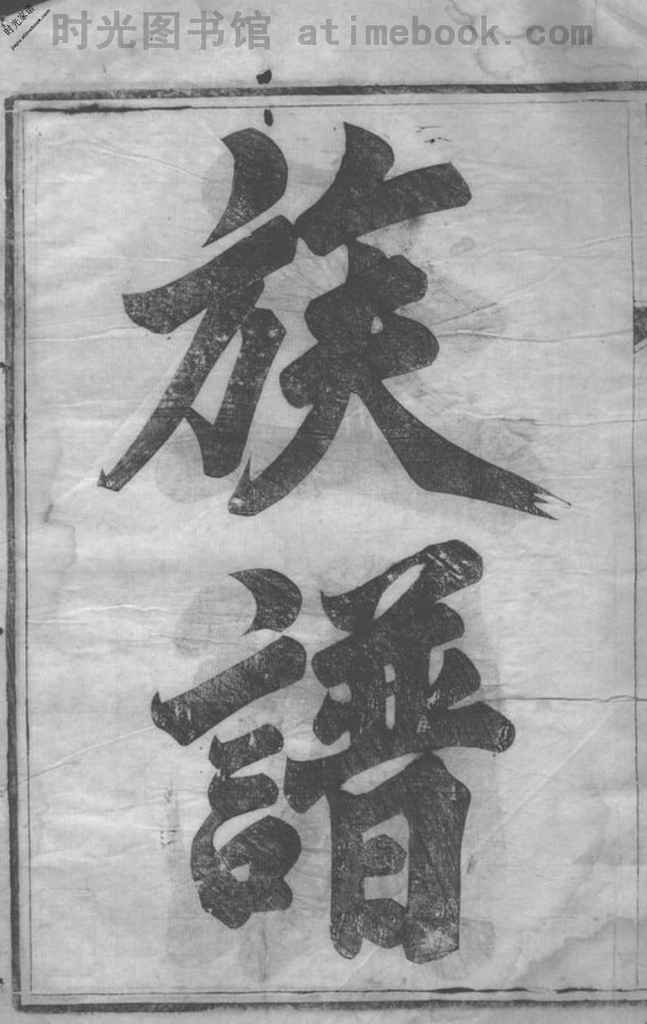 时光图书馆 atimebook.com
族
譜